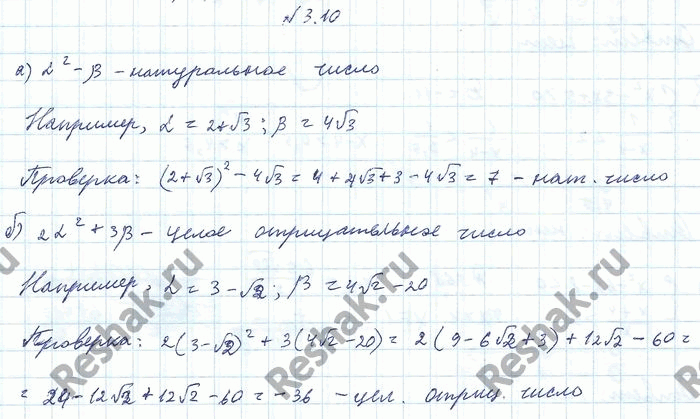 №3.10
а) α² - β - натуральное число
Например, α = 2+√3; β = 4√3
Проверка: (2+√3)² - 4√3 = 4 + 4√3 + 3 - 4√3 = 7 - нат. число
б) 2α² + 3β - целое отрицательное число
Например, α = 3 - √2; β = 4√2 - 20
Проверка: 2(3-√2)² + 3(4√2 - 20) = 2(9 - 6√2 + 3) + 12√2 - 60 =
= 24 - 12√2 + 12√2 - 60 = -36 - цел. отриц. число
Reshak.ru
Reshak.ru
Reshak.ru